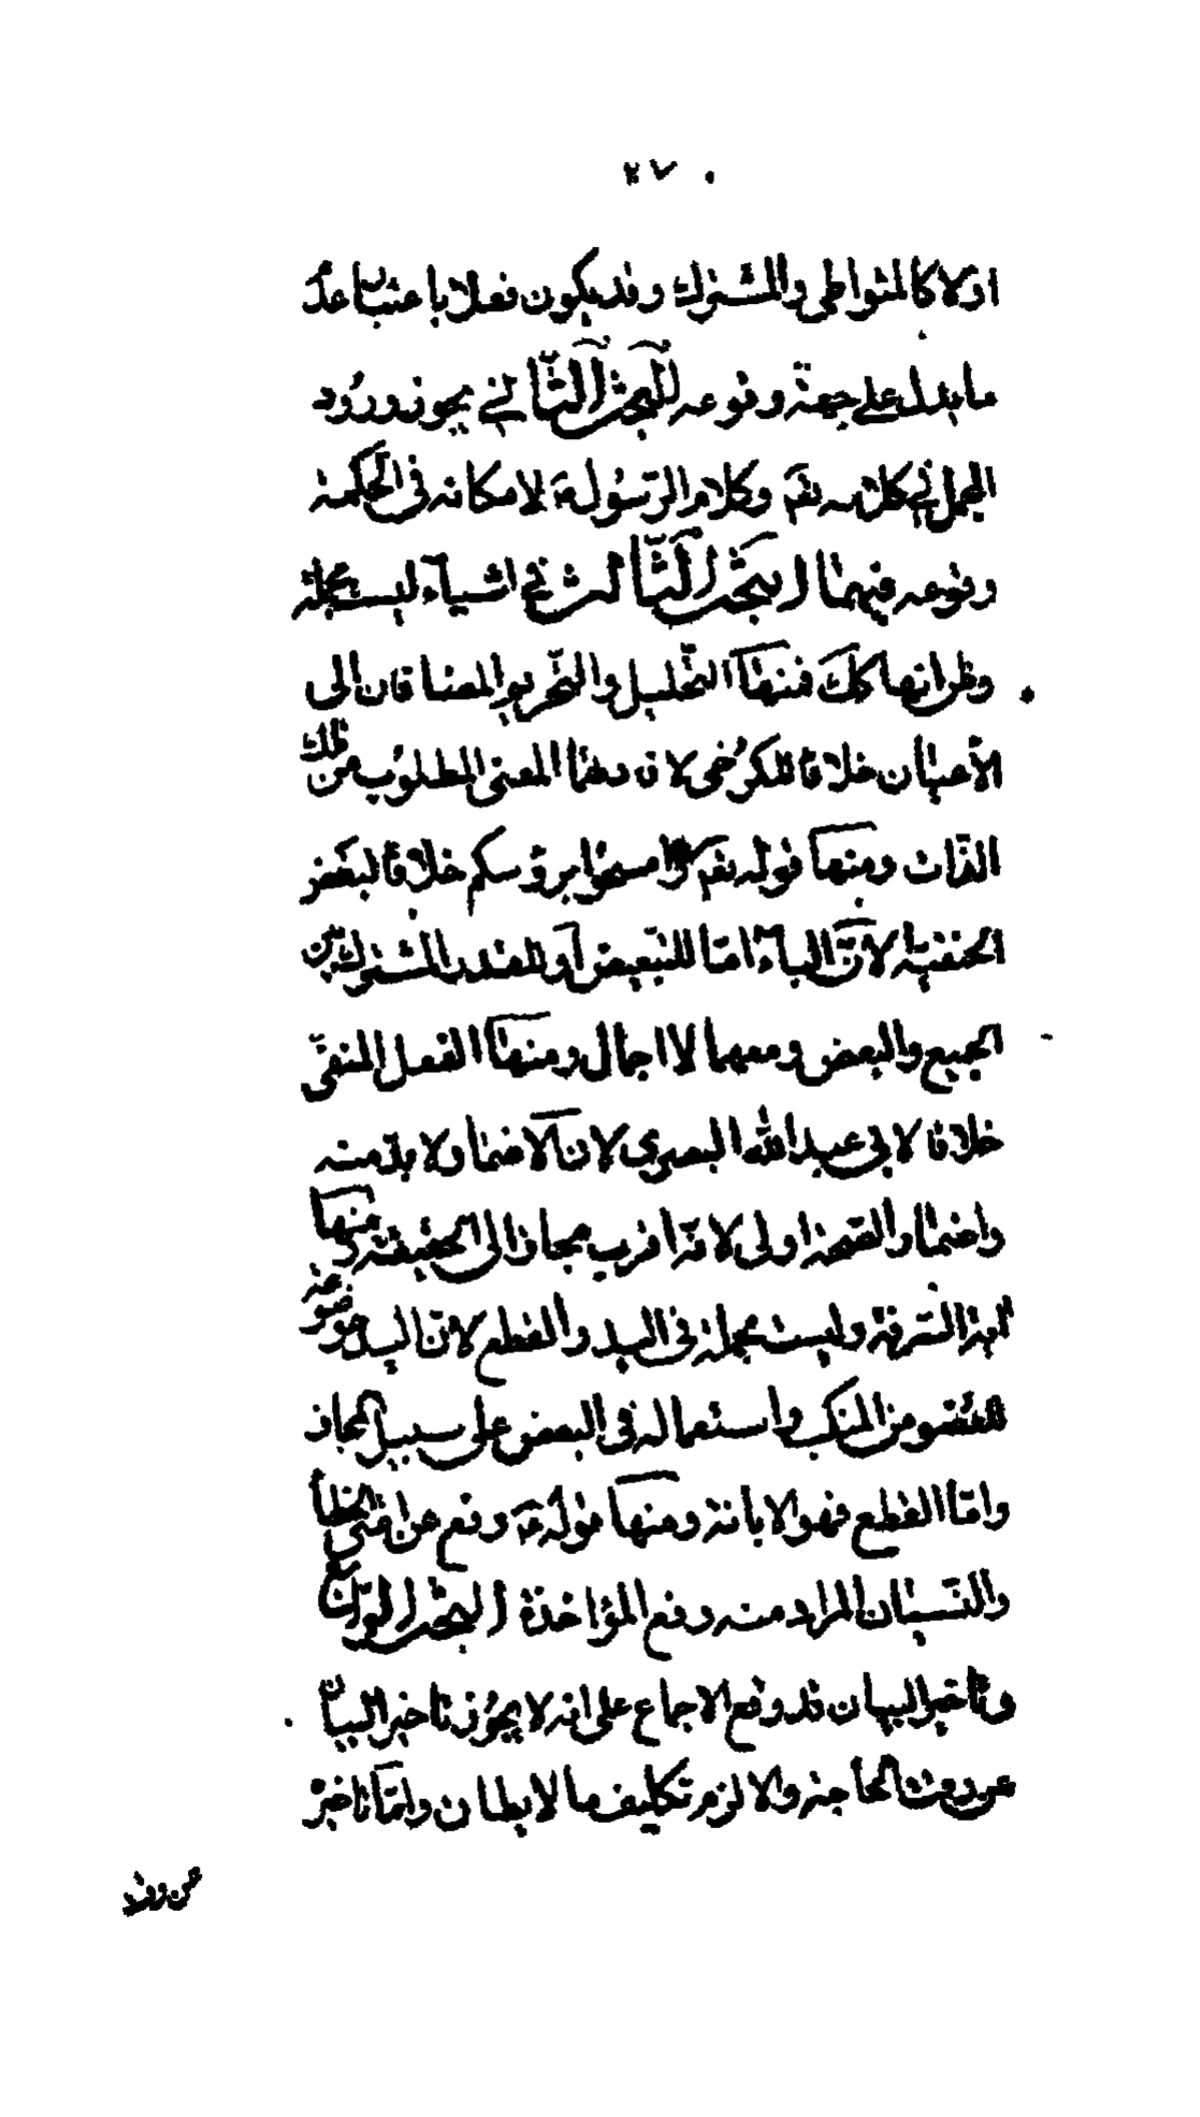 ٢٧
اولا كالمتواطى والمشترك وقد يكون فعلا باعتبار عدم
ما يدل على جهة وقوعه البحث الثاني في يجوز ورود
المجمل في كلامه تعم وكلام الرسول ص لامكانه في الحكمة
ووقوعه فيهما البحث الثالث في اشياء ليست مجملة
وظن انها كك فمنها التحليل والتحريم المضافان الى
الأعيان خلافا للكرخى لان دهما المعنى المطلوب من تلك
الذات ومنها قوله تعم وامسحوا برؤسكم خلافا لبعض
الحنفية لأن الباء امّا للتبعيض أو للقدر المشترك بين
الجميع والبعض ومعهما لا اجمال ومنها الفعل المنفى
خلافا لابى عبد الله البصري لان الاضمار لا بد منه
واضمار الصحة اولى لانه اقرب مجاز الى الحقيقة ومنها
اية السرقة وليست مجملة في اليد والقطع لأن اليد موضوعة
للعضو من المنكب واستعماله في البعض على سبيل المجاز
وامّا القطع فهو الابانة ومنها قوله ع رفع عن امتى الخطأ
والنسيان المراد منه رفع المؤاخذة البحث الرابع
وتاخير البيان قد وقع الاجماع على انه لا يجوز تاخير البيان
عن وقت الحاجة والا لزم تكليف ما لا يطاق وامّا تاخيره
عن وقت